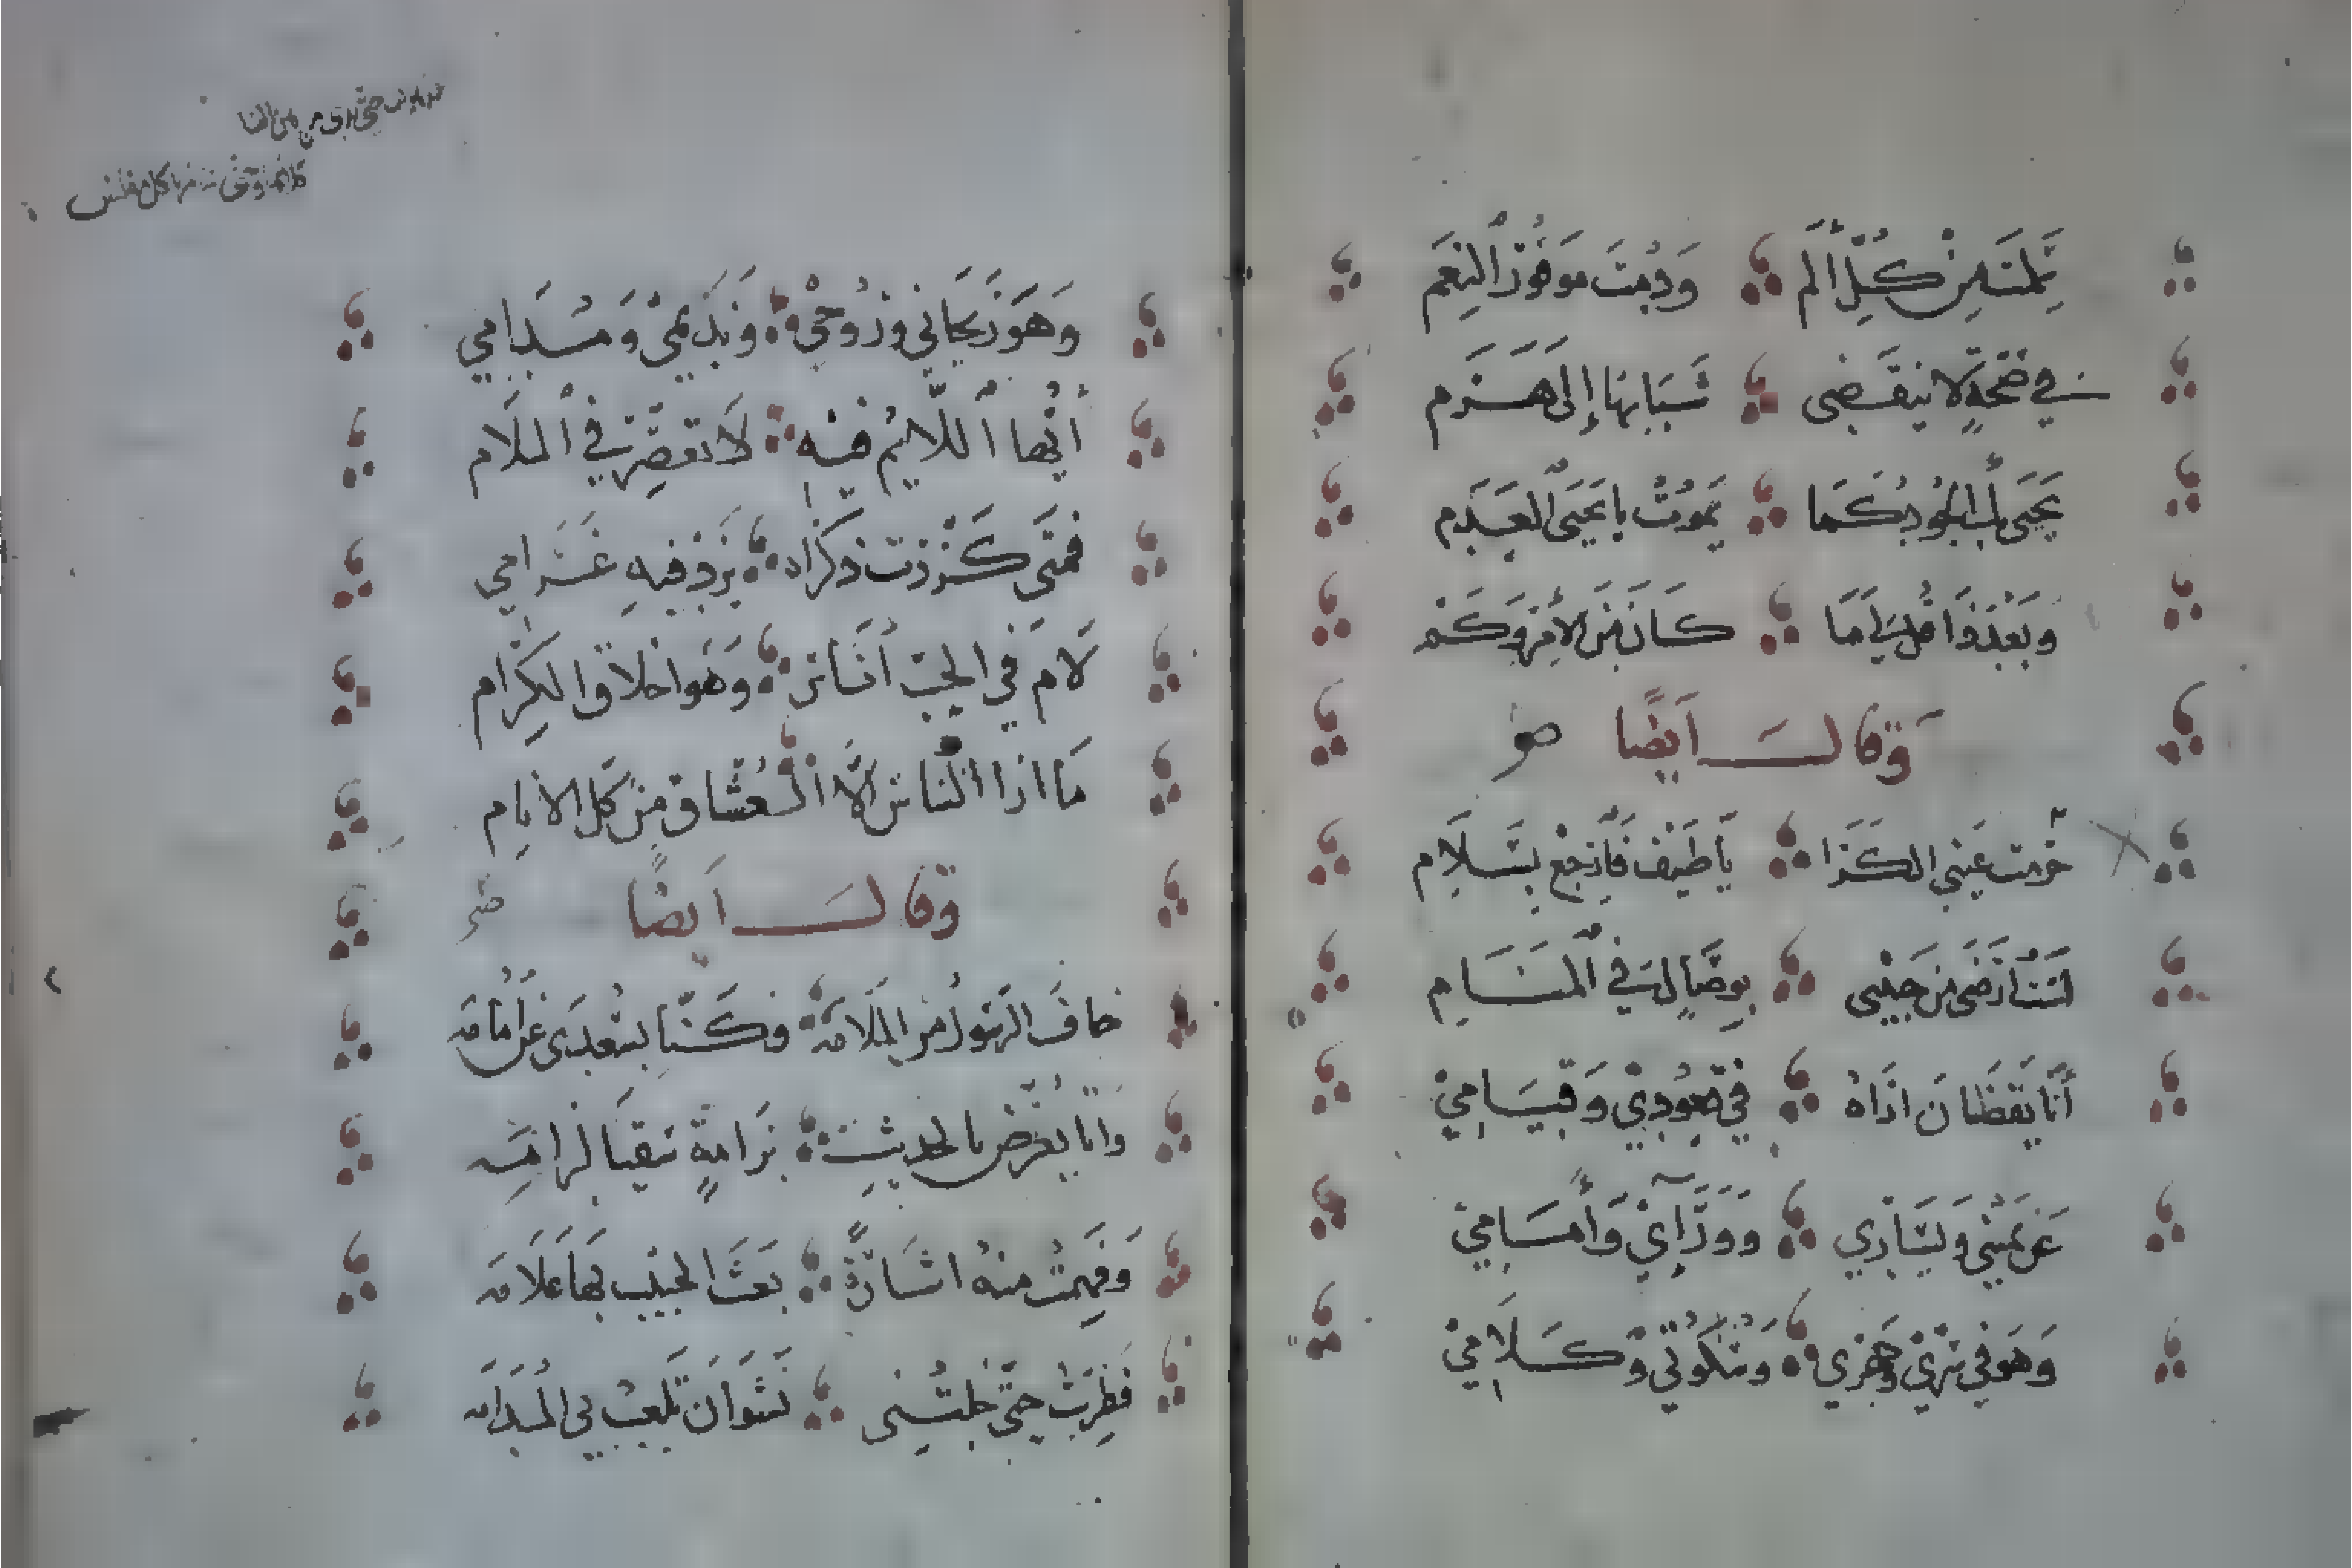 سَلِمْتَ مِنْ كُلِّ أَلَم وَدُمْتَ مَوْفُورَ النِعَم
في صِحَّةٍ لا ينقَضِى شَبَابُهَا إِلَى هَرَم
يَحْيَى بك الجُودُ كَمَا يَمُوتُ يا يَحْيَى العَدَم
وَبَعْدَ ذَا قُل لِى مَا كَانَ مِنَ الأَمْرِ وَكَمْ
وَقَالَ أَيضًا
حُرمت عَيني الكَرَا يَا طَيْف فَارْجِعْ بِسَلَامِ
لَسْتُ أَرْضَى مِنْ حَبِيْبى بِوِصَالٍ في الْمَنَامِ
أَنَا يَقْظَانَ اَرَاهُ فِي قُعُودِيْ وَقِيَامِيْ
عَنْ يَمِيْنِي وَيَسَارِي وَوَرَآئِيْ وَأَمَامِيْ
وَهَوَ في سِرِّيْ وَجَهْرِي وَسُكُوتِي وَكَلَامِيْ
وَهَوَ رَيْحَانِي وَرُوحِيْ وَنَدِيْمِيْ وَمُدَامِي
أَيُّهَا اللَّائِمُ فِيْهِ لَا تُقَصِّرْ فِي الْمَلَام
فَمَتَى كَرَّرْتَ ذِكرَاه يَزِدْ فيهِ غَرَامِي
لَامَ فِي الحُبِّ أُنَاسٌ وَهُوَ اخلاقُ الكِرَام
مَا اَرَا النَّاسَ اِلَّا الْعُشَّاق مِنْ كُلِّ الأَنَامِ
وَقَالَ اَيضًا
خافَ الرَسُولُ مِنَ المَلَامَة فَكَنَّا بِسُعْدَى عَنْ اُمَامَه
وَاتَا يُعَرِّضُ بالحَدِيثِ بَرَامَةٍ سَقيَا لِرَامَه
وَفَهِمْتُ مِنْهُ اشَارَةً بَعَثَ الحَبِيْبُ بِهَا عَلَامَه
فَطَرِبْتُ حَتَّى خِلْتُنِى نَشْوَانَ تَلْعَبُ بِي المُدَامَه